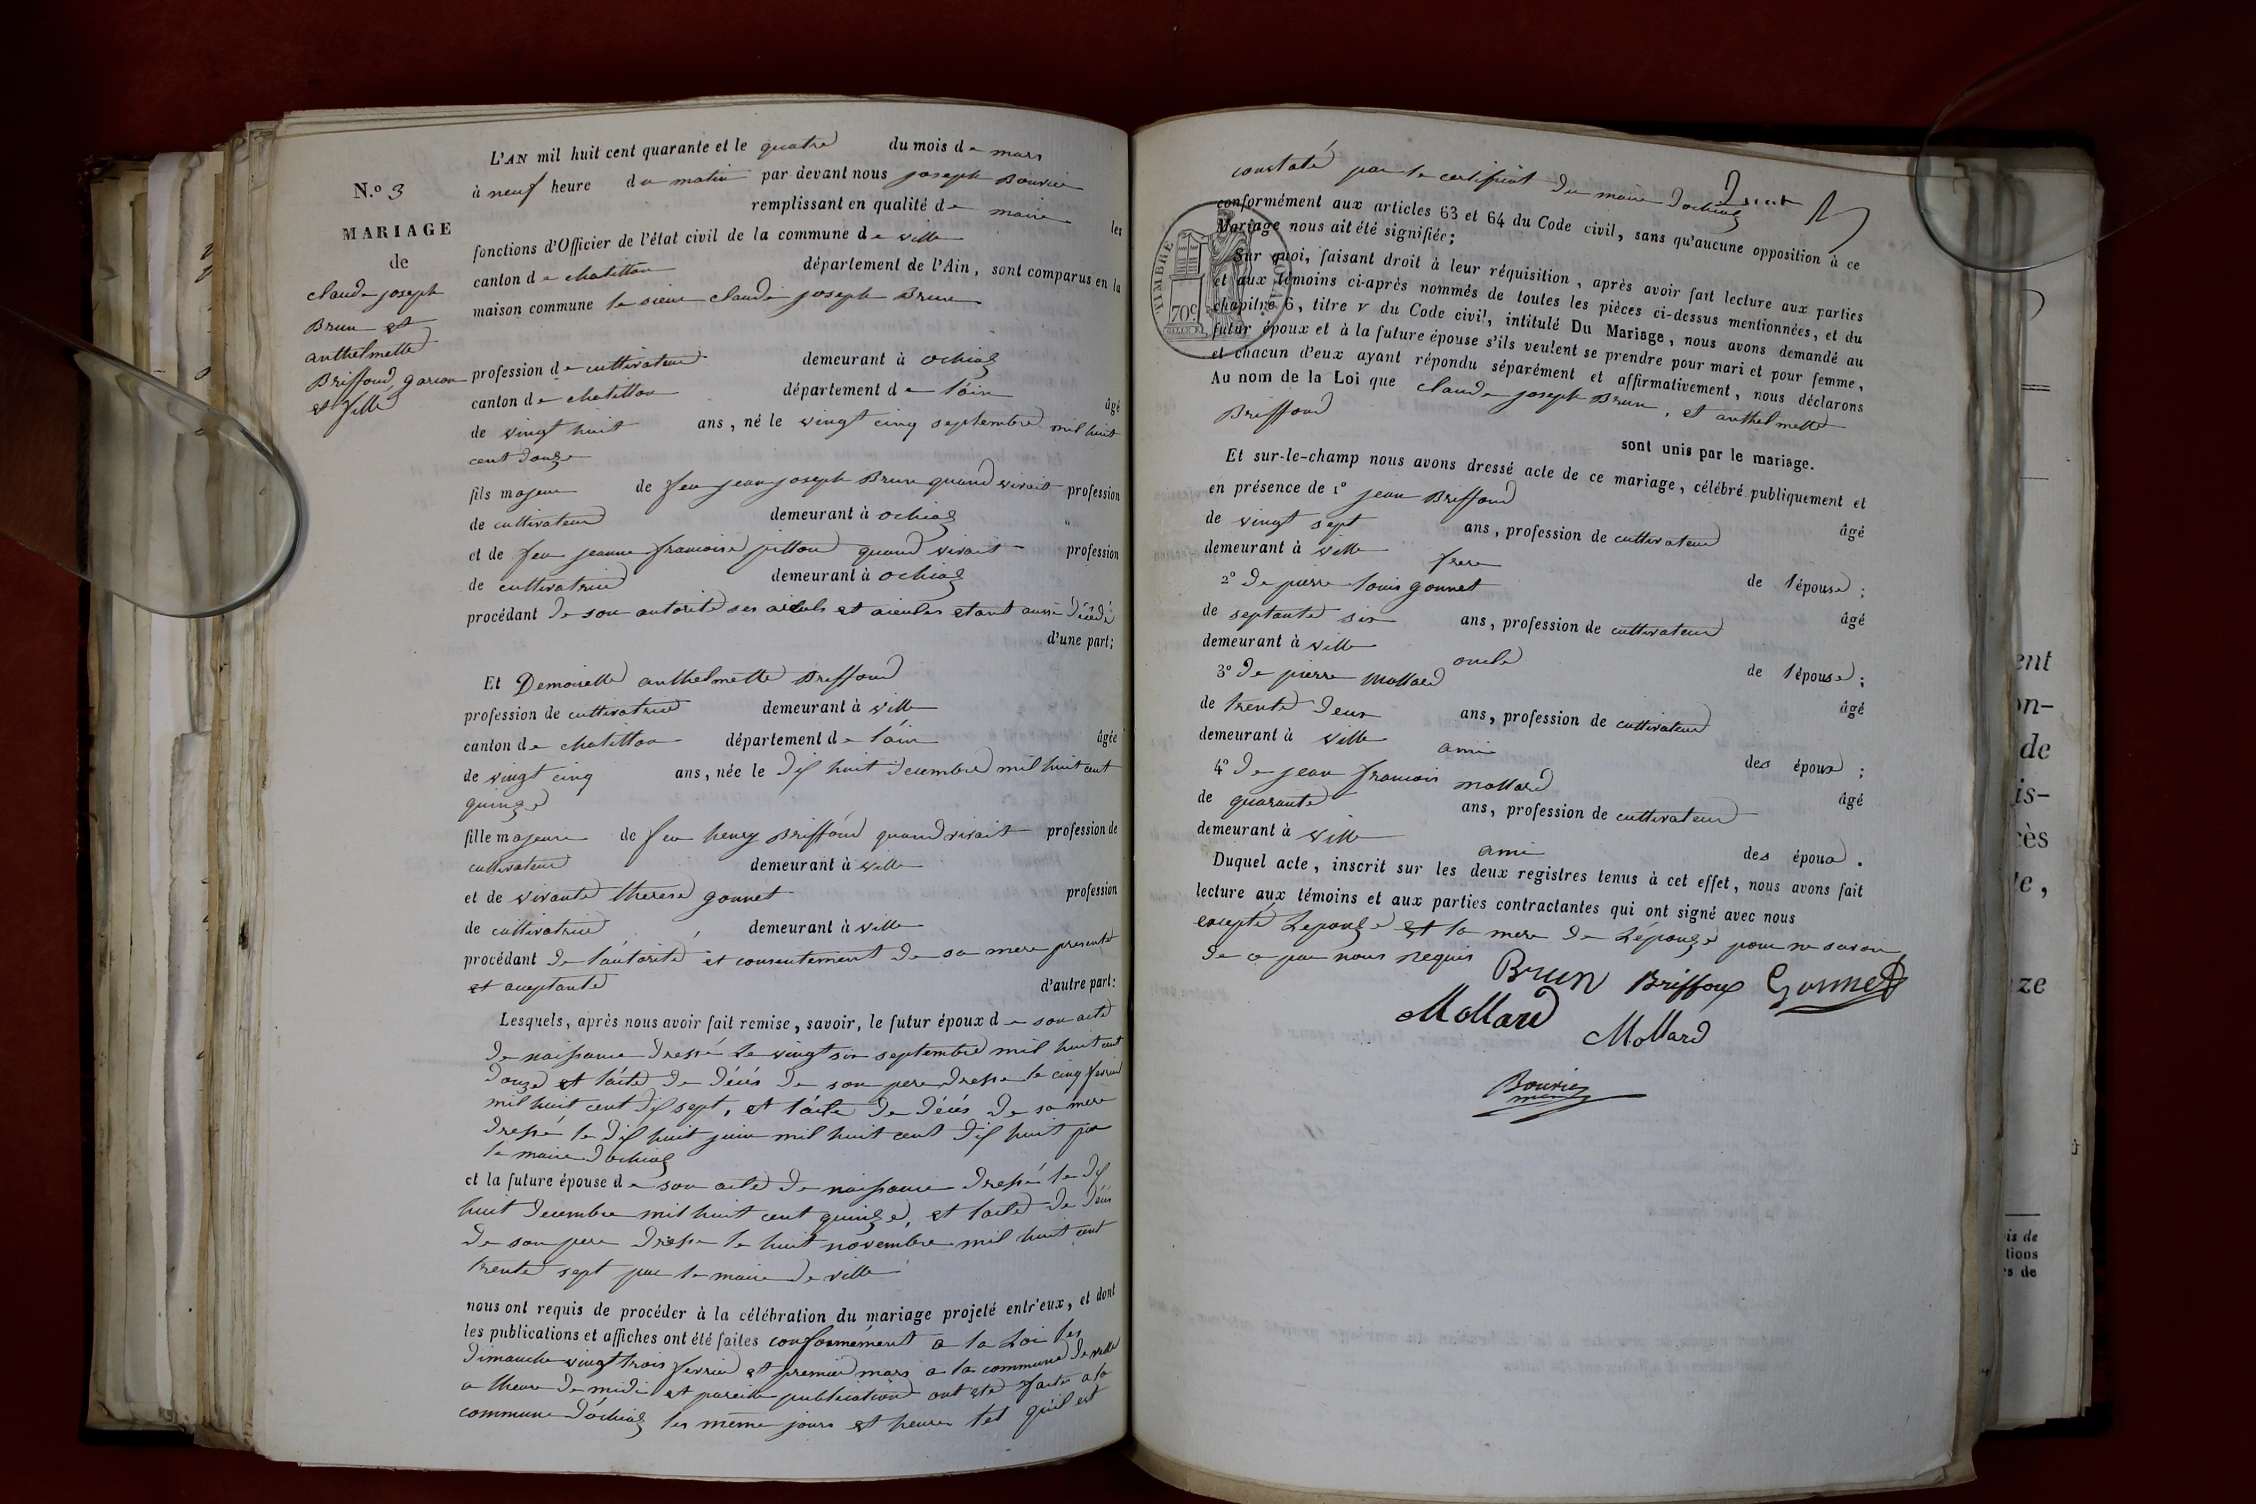 N.º 3
MARIAGE
de
claude joseph
Brun et
anthelmette
Briffoud, garcon
et fille
L'AN mil huit cent quarante et le quatre du mois de mars
à neuf heure du matin par devant nous joseph Bouvier
remplissant en qualité de maire les
fonctions d'Officier de l'état civil de la commune de ville
canton de chatillon département de l'Ain, sont comparus en la
maison commune le sieur claude joseph Brun
profession de cultivateur demeurant à ochiaz
canton de chatillon département de l'ain âgé
de vingt huit ans, né le vingt cinq septembre mil huit
cent douze
fils majeur de feu jean joseph Brun quand vivait profession
de cultivateur demeurant à ochiaz
et de feu jeanne francoise pittou quand vivait profession
de cultivatrice demeurant à ochiaz
procédant de son autorité ses aieuls et aieules etant aussi décédé
d'une part;
Et Demoiselle anthelmette Briffoud
profession de cultivatrice demeurant à ville
canton de chatillon département de l'ain âgée
de vingt cinq ans, née le dix huit decembre mil huit cent
quinze
fille majeure de feu henry Briffoud quand vivait profession de
cultivateur demeurant à ville
et de vivante therese gonnet profession
de cultivatrice demeurant à ville
procédant de l'autorité et consentement de sa mere presente
et acceptante d'autre part:
Lesquels, après nous avoir fait remise, savoir, le futur époux de son acte
de naissance dressé le vingt six septembre mil huit cent
douze et l'acte de décés de son pere dressé le cinq fevrier
mil huit cent dix sept, et l'acte de décés de sa mere
dressé le dix huit juin mil huit cent dix huit par
le maire d'ochiaz
et la future épouse de son acte de naissance dressé le dix
huit decembre mil huit cent quinze, et l'acte de décés
de son pere dressé le huit novembre mil huit cent
trente sept par le maire de ville
nous ont requis de procéder à la célébration du mariage projeté entr'eux, et dont
les publications et affiches ont été faites conformément a la Loi les
dimanche vingt trois fevrier et premier mars a la commune de ville
a l'heure de midi et pareille publication ont été faites a la
commune d'ochiaz les même jours et heure tel qu'il est
constaté par le certificat du maire d'ochiaz
TIMBRE ROYAL
70c
conformément aux articles 63 et 64 du Code civil, sans qu'aucune opposition à ce
Mariage nous ait été signifiée;
Sur quoi, faisant droit à leur réquisition, après avoir fait lecture aux parties
et aux témoins ci-après nommés de toutes les pièces ci-dessus mentionnées, et du
chapitre 6, titre v du Code civil, intitulé Du Mariage, nous avons demandé au
futur époux et à la future épouse s'ils veulent se prendre pour mari et pour femme,
et chacun d'eux ayant répondu séparément et affirmativement, nous déclarons
Au nom de la Loi que claude joseph Brun, et anthelmette
Briffoud
sont unis par le mariage.
Et sur-le-champ nous avons dressé acte de ce mariage, célébré publiquement et
en présence de 1º jean Briffoud
de vingt sept ans, profession de cultivateur âgé
demeurant à ville frere de l'épouse;
2º de pierre louis gonnet
de septante six ans, profession de cultivateur âgé
demeurant à ville oncle de l'épouse;
3º de pierre mollard
de trente deux ans, profession de cultivateur âgé
demeurant à ville ami des époux;
4º de jean francois mollard
de quarante ans, profession de cultivateur âgé
demeurant à ville ami des époux.
Duquel acte, inscrit sur les deux registres tenus à cet effet, nous avons fait
lecture aux témoins et aux parties contractantes qui ont signé avec nous
excepté L'epouze et la mere de L'épouze pour ne savoir
de ce par nous requis
Brun Briffoux Gonnet
Mollard
Mollard
Bouvier
maire